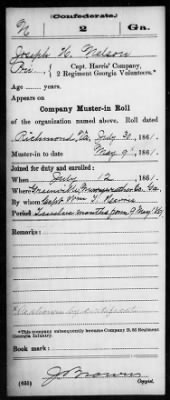 (Confederate.)
N 2 Ga.
Joseph H. Nelson
Pri, Capt. Harris' Company,
2 Regiment Georgia Volunteers.*
Age years.
Appears on
Company Muster-in Roll
of the organization named above. Roll dated
Richmond, Va, July 20, 1861.
Muster-in to date May 9, 1861.
Joined for duty and enrolled:
When July 12, 1861.
Where Greenville Meriwether Co. Ga.
By whom Capt Wm T.
Period months from 9 May 1861
Remarks:
*This company subsequently became Company
Georgia Infantry.
Book mark:
J Brown
Copyist.